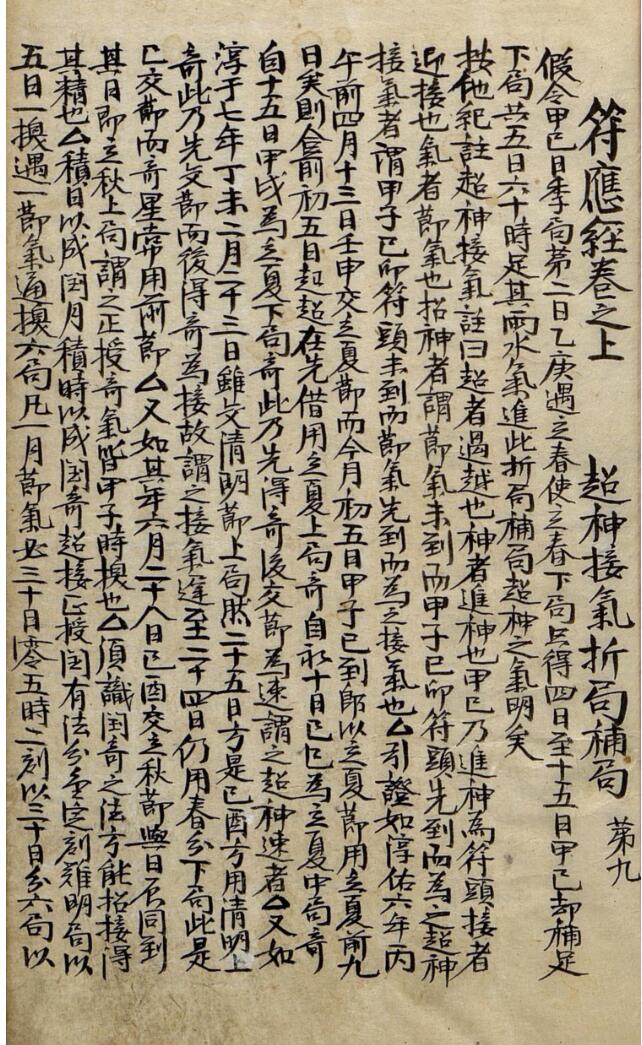 符應經卷之上 超神接氣折局補局 第九
假令甲己日季局第二日乙庚遇立春使立春下局只得四日至十五日甲己却補足
下局共五日六十時足其雨水氣進此折局補局超神之氣明矣
按他紀註超神接氣註曰超者過越也神者進神也甲己乃進神為符頭接者
迎接也氣者節氣也招神者謂節氣未到而甲子己卯符頭先到而為之超神
接氣者謂甲子己卯符頭未到而節氣先到而為之接氣也厶引證如淳佑六年丙
午前四月十三日壬申交立夏節而今月初五日甲子已到郎以立夏節用立夏前九
日矣則合前初五日起超在先借用立夏上局奇自初十日己巳為立夏中局奇
自十五日甲戌為立夏下局奇此乃先得奇後交節為速謂之超神速者厶又如
淳于七年丁未二月二十三日雖交清明節上局然二十五日方是己酉方用清明上
奇此乃先交節而後得奇為接故謂之接氣遲至二十四日仍用春分下局此是
已交節而奇星常用前節厶又如其年六月二十八日己酉交立秋節與日辰同到
其日即立秋上局謂之正授奇氣皆甲子時換也厶須識閏奇之法方能招接得
其精也厶積日以成閏月積時以成閏奇超接正授閏有法分金定刻難明局以
五日一換遇一節氣通換六局凡一月節氣必三十日零五時二刻以三十日分六局以